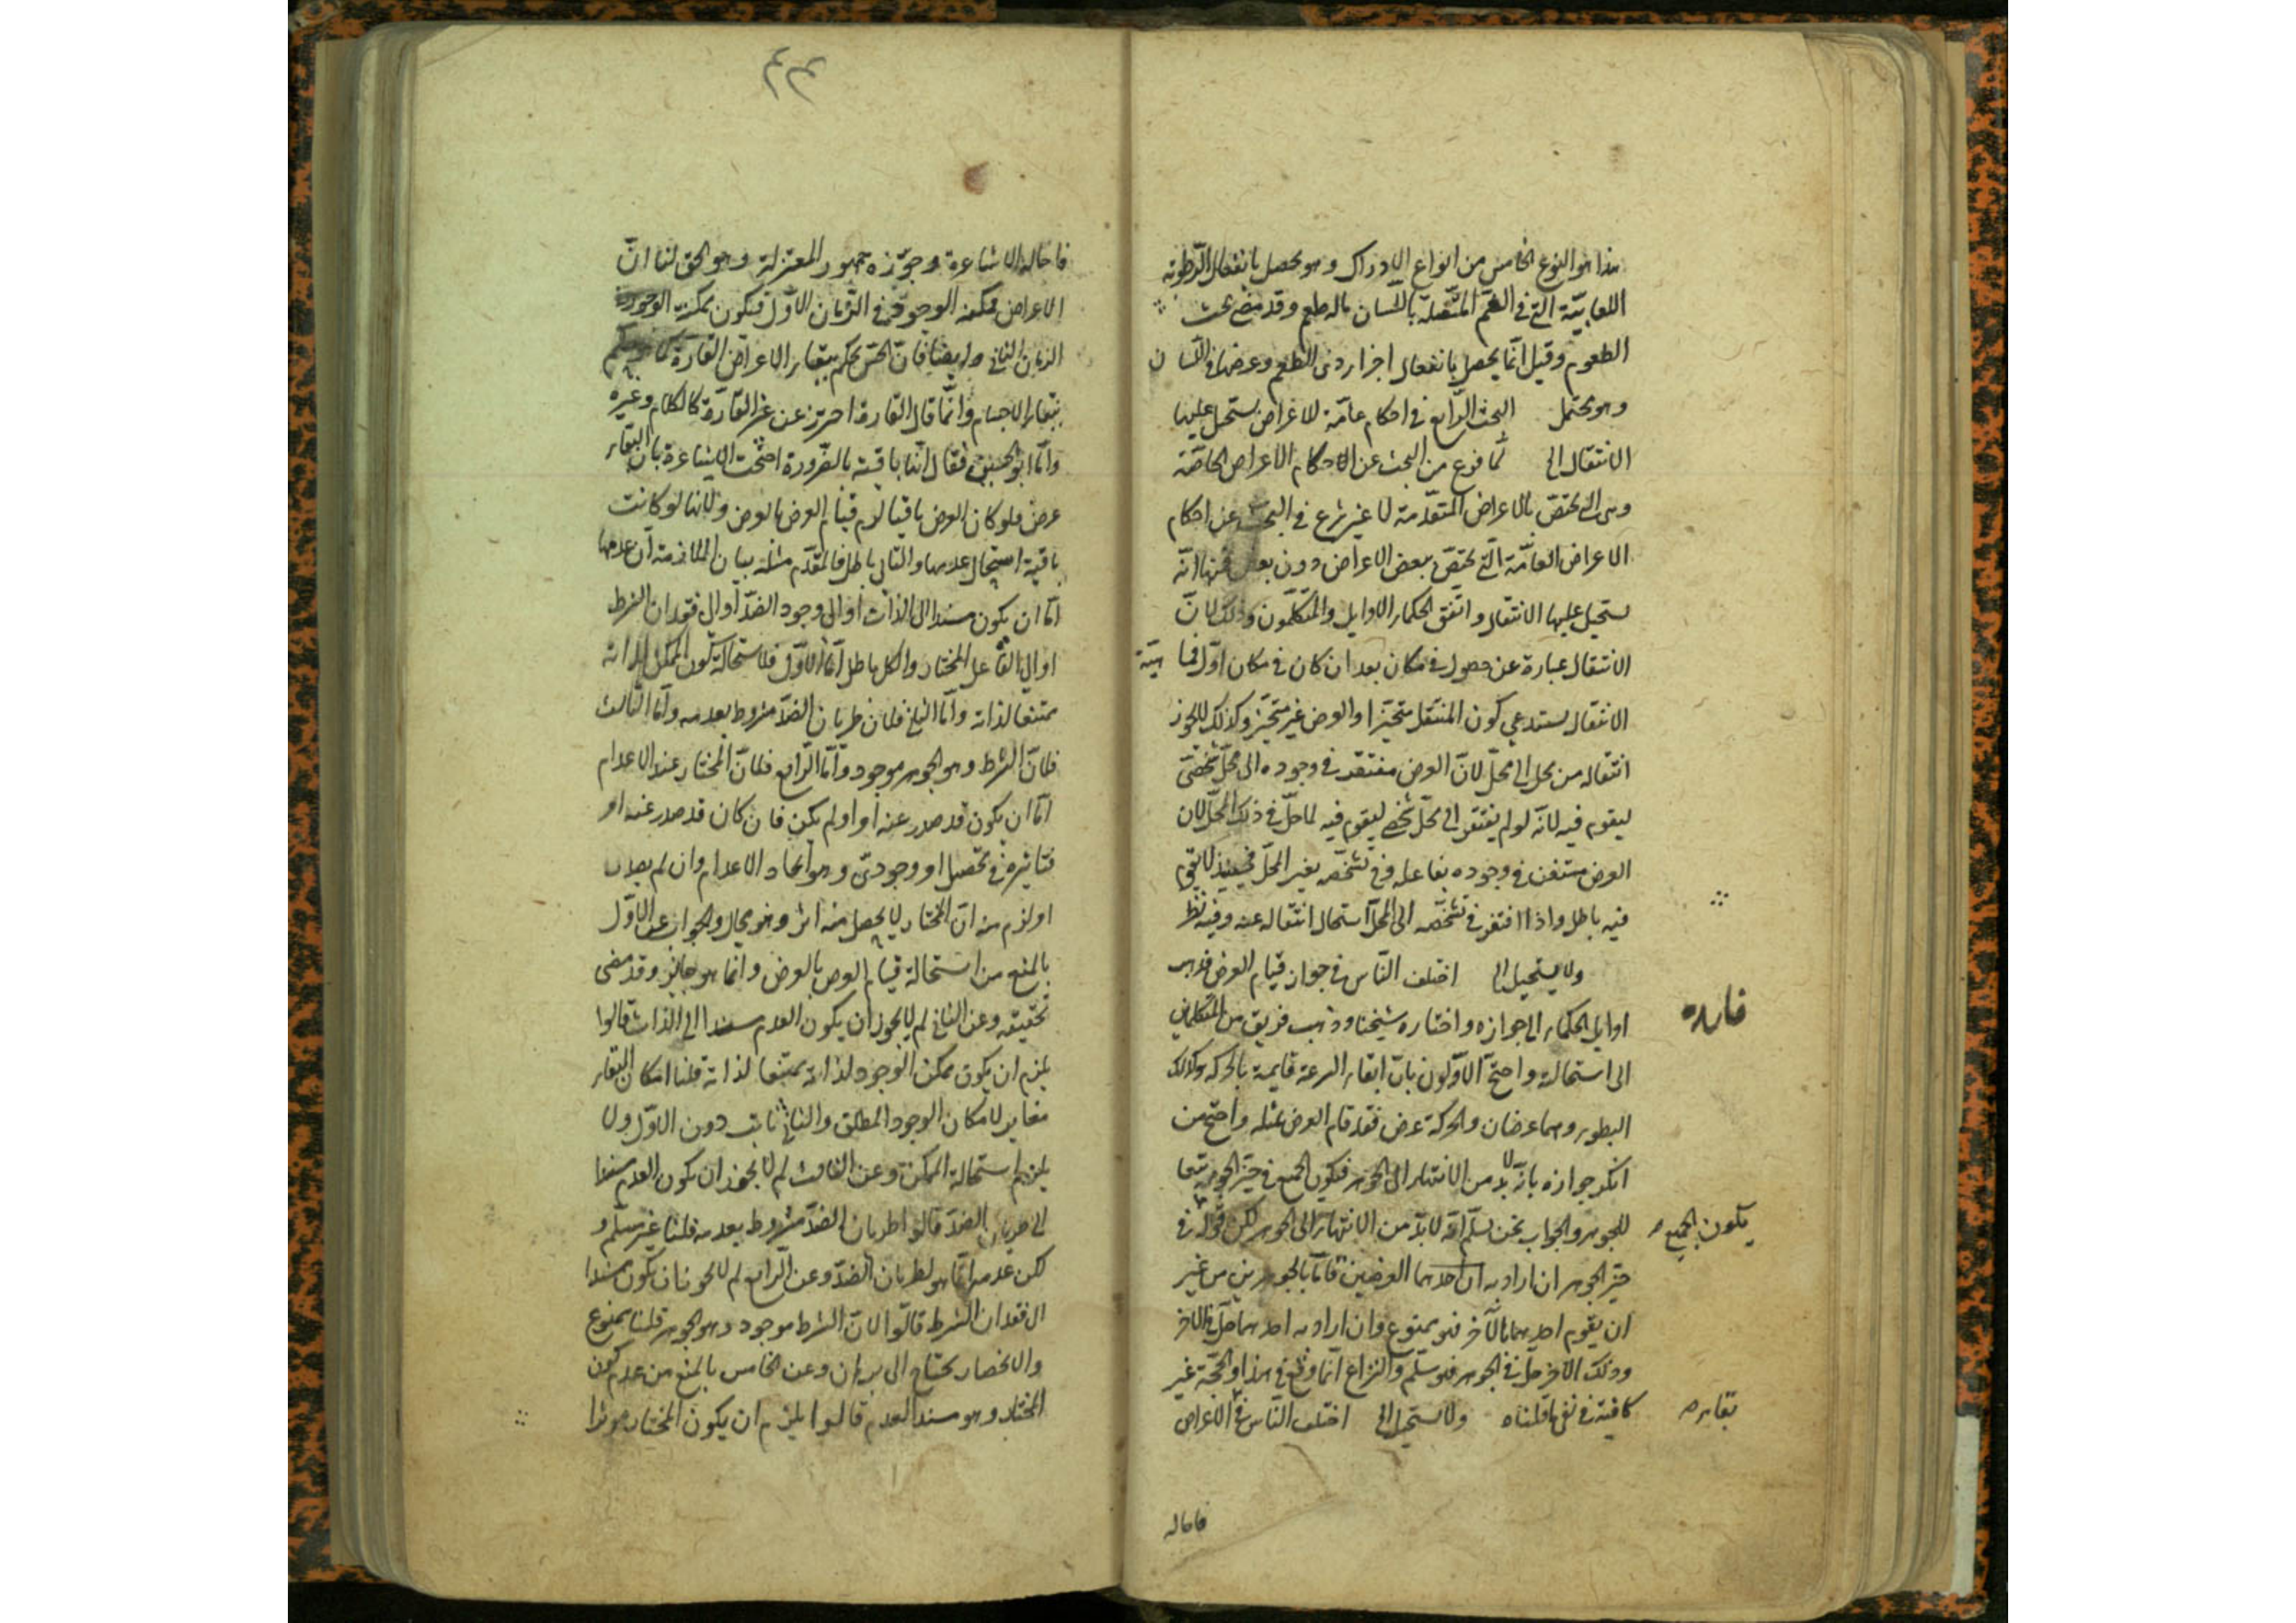 هذا هو النوع الخامس من انواع الادراك وهو يحصل بانفعال الرطوبة
اللعابيّة التي في الفم المتّصلة باللسان بالمطعم وقد مضى بحث
الطعوم وقيل انّما يحصل بانفعال اجزاء من المطعم وعرضها في اللسان
وهو محتمل البحث الرّابع في احكام عامّة للاعراض يستحيل عليها
الانتقال الى لمّا فرغ من البحث عن الاحكام الاعراض الخاصّة
وهى التى تختصّ بالاعراض المتقدّمة لا غير شرع في البحث عن احكام
الاعراض العامّة الّتي تختصّ ببعض الاعراض دون بعض فمنها انّه
يستحيل عليها الانتقال واتّفق الحكماء الاوايل والمتكلّمون وذلك لانّ
الانتقال عبارة عن حصول في مكان بعد ان كان في مكان اوّل فما هيّة
الانتقال يستدعي كون المنتقل متحيّزا والعرض غير متحيّز وكذلك لا يجوز
انتقاله من محلّ الى محلّ لانّ العرض مفتقر في وجوده الى محلّ شخصيّ
ليقوم فيه لانّه لو لم يفتقر الى محلّ شخصي ليقوم فيه لما حلّ في ذلك المحلّ لان
العرض مستغن في وجوده بفاعله وفي تشخّصه بغير المحلّ فحينئذ لا يقوم
فيه باطل واذا افتقر في تشخّصه الى المحلّ استحال انتقاله عنه وفيه نظر
ولا يستحيل الى اختلف النّاس في جواز قيام العرض فذهب
اوايل الحكماء الى جوازه واختاره شيخنا وذهب فريق من المتكلمين
فايده
الى استحالته واحتجّ الاوّلون بانّ ابقاء السرعة قايمة بالحركه وكذلك
البطوء وهما عرضان والحركة عرض فقد قام العرض بمثله واحتج من
انكر جوازه بانّه لا بدّ من الانتهاء الى الجوهر فيكون الجميع في حيّز الجوهر تبعا
للجوهر والجواب نحن نسلّم انّه لا بدّ من الانتهاء الى الجوهر لكن قوله في
يكون الجميع
حيّز الجوهر ان اراد به ان احدهما العرضين قاما بالجوهرين من غير
ان يقوم احدهما بالآخر فهو ممنوع وان اراد به احدهما حلّ في الاخر
وذلك الآخر حلّ في الجوهر فهو مسلّم والنزاع انّما وقع في هذا والحجّة غير
كافية في نفى ما قلناه ولا يستحيل الى اختلف النّاس في الاعراض
بقاء
فاحاله
٤٤
فاحاله الاشاعرة وجوّزه جمهور المعتزلة وهو الحق لنا انّ
الاعراض ممكنة الوجود في الزّمان الاوّل فتكون ممكنة الوجود في
الزمان الثاني وايضا فانّ الحسّ يحكم ببقاء الاعراض القارّة كما يحكم
ببقاء الاجسام وانّما قال القارة احترز عن غير القارّة كالكلام وغيره
وامّا ابو الحسين فقال انّها باقية بالضّرورة احتجّت الاشاعرة بانّ البقاء
عرض فلو كان العرض باقيا لزم قيام العرض بالعرض ولانها لو كانت
باقية استحال عدمها والتالي باطل فالمقدّم مثله بيان الملازمة ان عدمها
امّا ان يكون مسندا الى الذات او الى وجود الضدّ او الى فقدان الشرط
او الى الفاعل المختار والكل باطل امّا الاوّل فلاستحالة كون الممكن لذاته
ممتنعا لذاته وامّا الثاني فلان طريان الضدّ مشروط بعدمه وامّا الثالث
فلانّ الشرط وهو الجوهر موجود وامّا الرّابع فلانّ المختار عند الاعدام
امّا ان يكون قد صدر عنه امر او لم يكن فان كان قد صدر عنه امر
فتاثيره في تحصيل امر وجوديّ وهو ايجاد لا اعدام وان لم يصدر
امر لزم منه انّ المختار لا يحصل منه اثر وهو محال والجواب عن الاوّل
بالمنع من استحالة قيام العرض بالعرض وانّما هو جائز وقد مضى
تحقيقه وعن الثاني لم لا يجوز ان يكون العدم مسندا الى الذات قالوا
يلزم ان يكون ممكن الوجود لذاته ممتنعا لذاته قلنا امكان البقاء
مغاير لامكان الوجود المطلق والثاني ثابت دون الاوّل ولا
يلزم استحالة الممكن وعن الثالث لم لا يجوز ان يكون العدم مسندا
الى طريان الضدّ قالوا طريان الضدّ مشروط بعدمه قلنا غير مسلّم و
لكن عدمه انّما هو لطريان الضدّ وعن الرّابع لم لا يجوز ان يكون مسندا
الى فقدان الشرط قالوا لانّ الشرط موجود وهو الجوهر قلنا ممنوع
والانحصار يحتاج الى برهان وعن الخامس بالمنع من عدم كون
المختار وهو مسند العدم قالوا يلزم ان يكون المختار موثرا